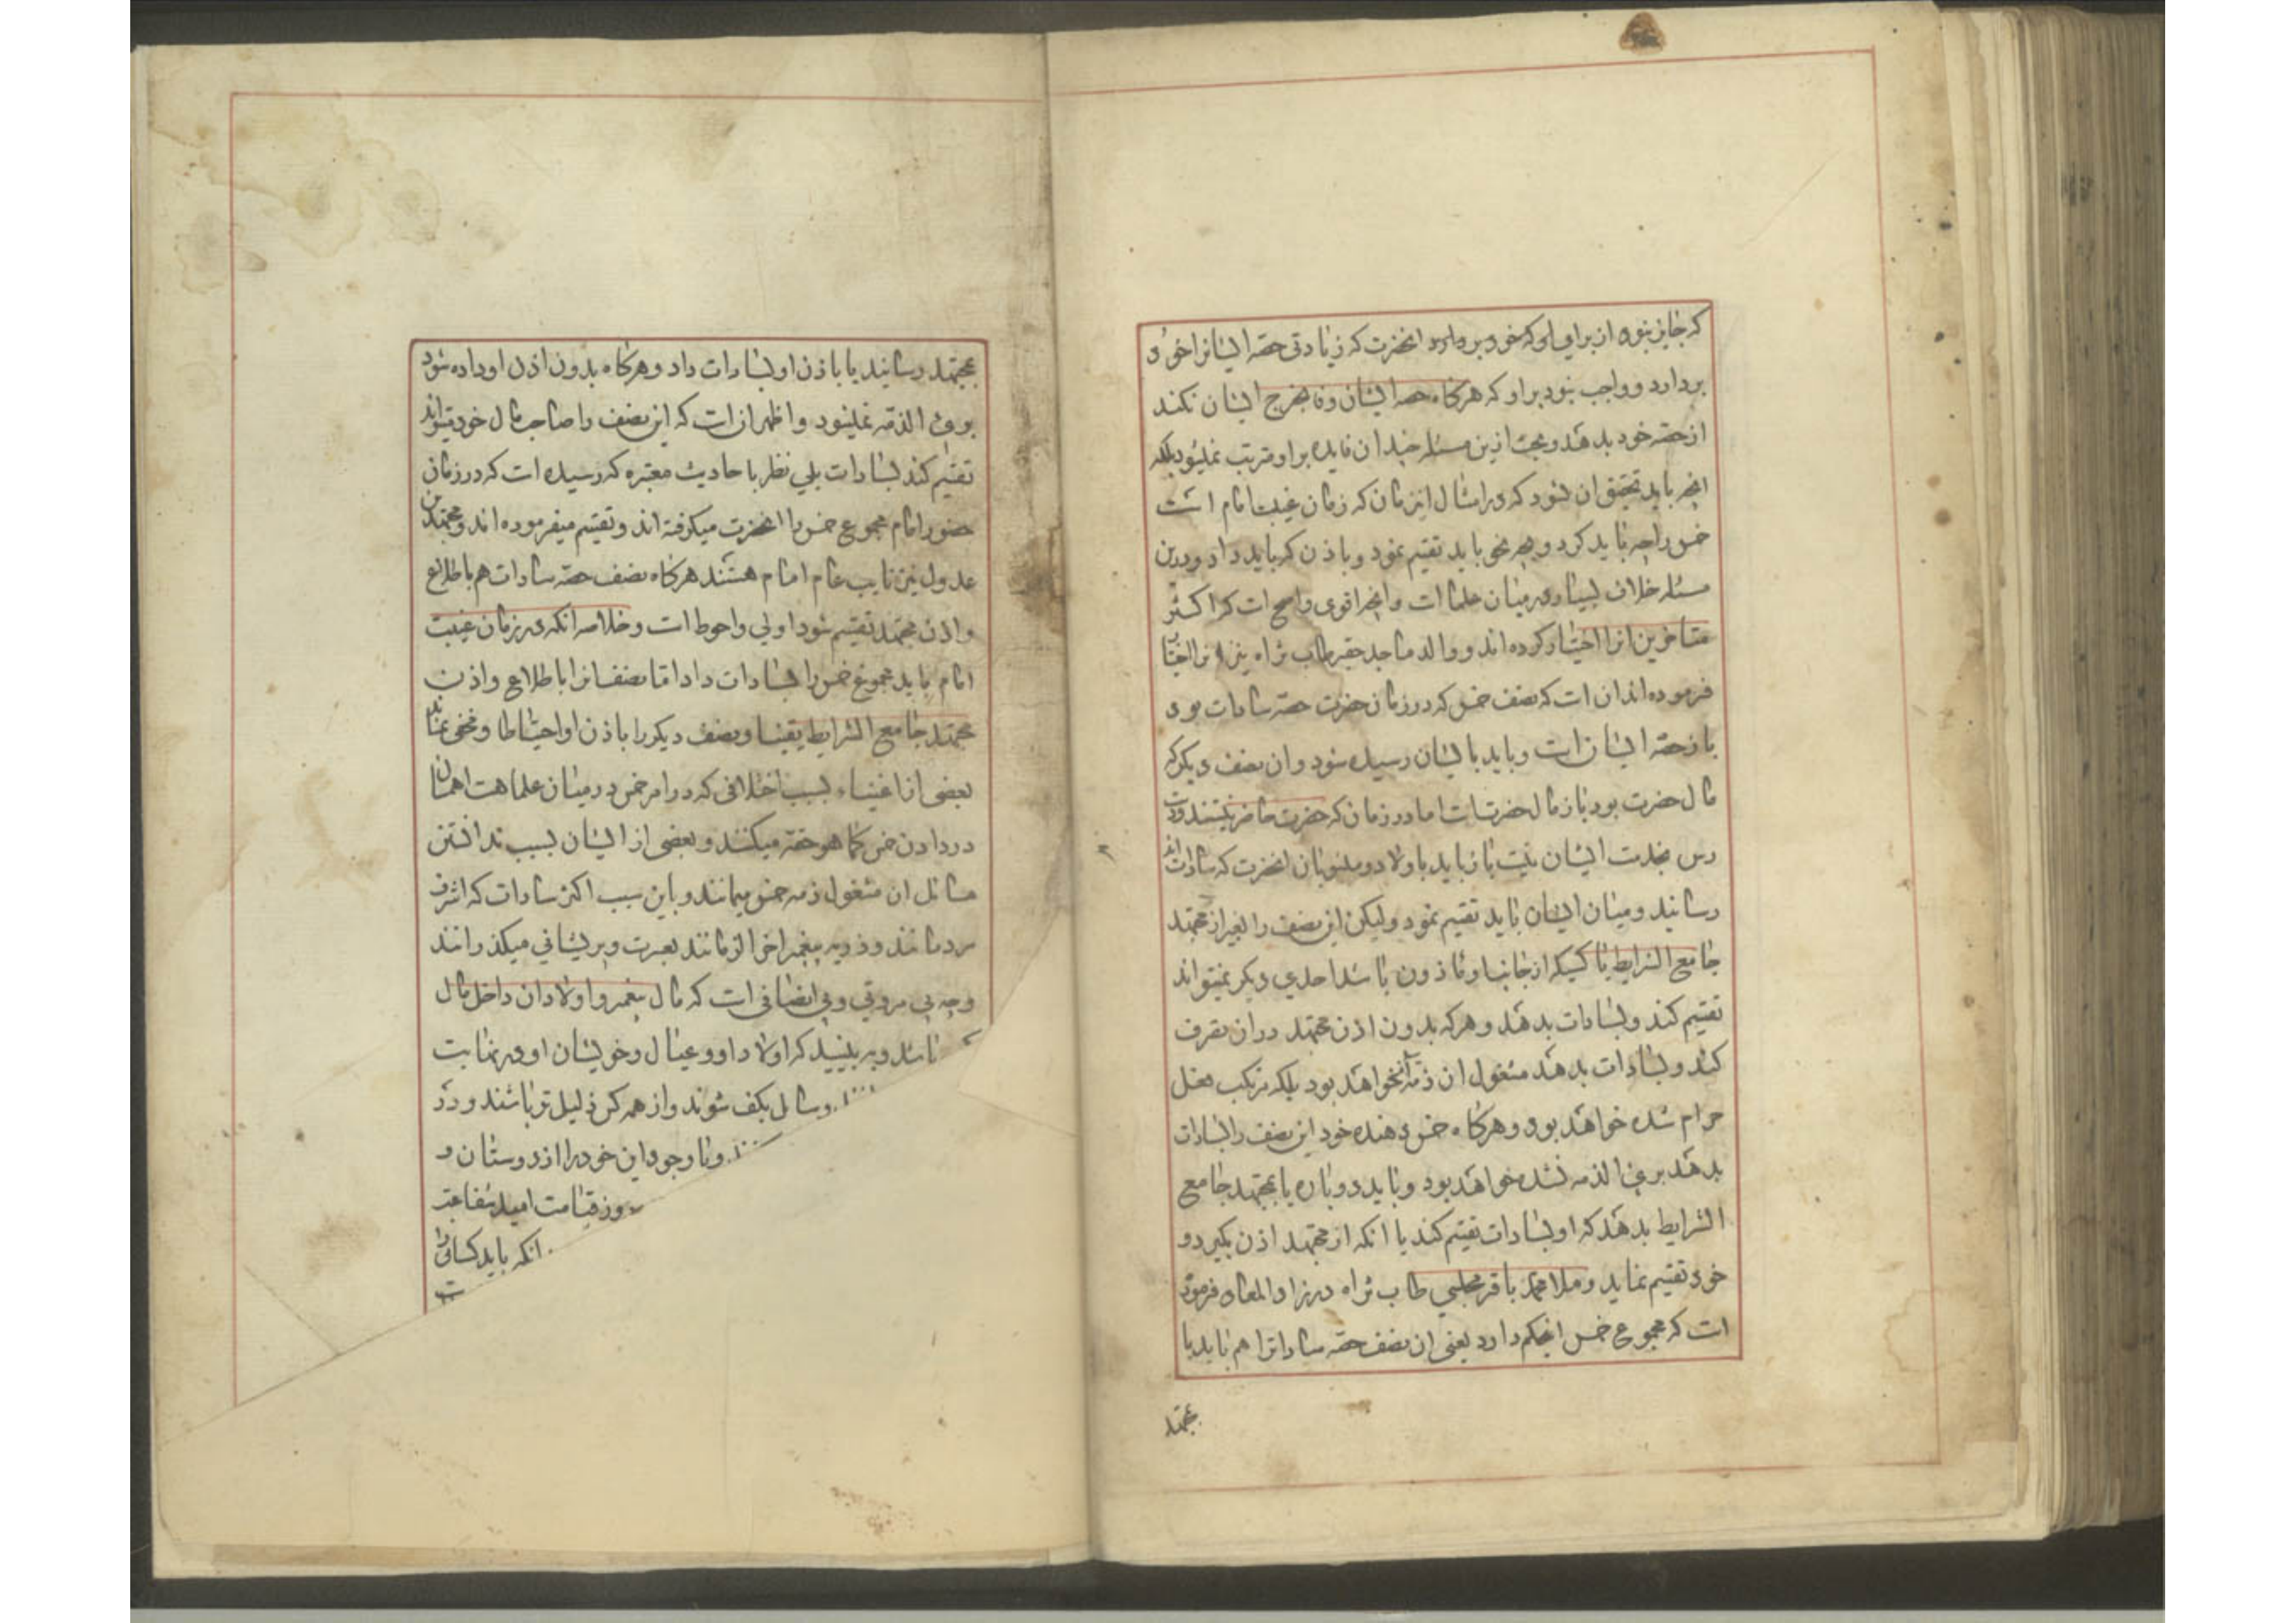 که جایز نبود از برای او که خود بردارد انحضرت که زیادتی حصه ایشانرا خود
بردارد و واجب نبود براو که هرکاه حصه ایشان وفا بخرج ایشان نکند
از حصه خود بدهد و بحث ازین مسئله چندان فایده براو مترتب نمیشود بلکه
انچه باید تحقیق ان نمود که در امثال این زمان که زمان غیبت امام است
خمس را چه باید کرد و بچه نحو باید تقسیم نمود و باذن که باید داد و درین
مسئله خلاف بسیار در میان علما است و انچه اقوی و اصح است که اکثر
متاخرین انرا اختیار کرده اند و والد ماجد حقیر طاب ثراه نیز انرا اختیار
فرموده اند ان است که نصف خمس که در زمان حضرت حصه سادات بود
باز حصه ایشان است و باید بایشان رسیده شود و ان نصف دیکر که
مال حضرت بود باز مال حضرتست اما در زمان که حضرت حاضر نیستند و دست
رس بخدمت ایشان نیست باز باید باولاد و منسوبان انحضرت که سادات اند
رسانید و میان ایشان باید تقسیم نمود ولیکن این نصف را بغیر از مجتهد
جامع الشرایط یا کسیکه از جانب او ماذون باشد احدی دیکر نمیتواند
تقسیم کند و بسادات بدهد و هرکه بدون اذن مجتهد در ان تصرف
کند و بسادات بدهد مشغول ان ذمه اش نخواهد بود بلکه مرتکب فعل
حرام شده خواهد بود و هرکاه خمس دهنده خود این نصف را بسادات
بدهد بری الذمه نشده خواهد بود و باید دوباره یا بمجتهد جامع
الشرایط بدهد که او بسادات تقسیم کند یا انکه از مجتهد اذن بکیرد و
خود تقسیم نماید و ملا محمد باقر مجلسی طاب ثراه در زاد المعاد فرموده
است که مجموع خمس اینحکم دارد یعنی ان نصف حصه سادات را هم باید یا
بمجتهد
بمجتهد رسانید یا باذن او بسادات داد و هرکاه بدون اذن او داده شود
بری الذمه نمیشود و اظهر ان است که این نصف را صاحب مال خود میتواند
تقسیم کند بسادات بلی نظر باحادیث معتبره که رسیده است که در زمان
حضور امام مجموع خمس را انحضرت میکرفته اند و تقسیم میفرموده اند و مجتهدین
عدول نیز نایب عام امام هستند هرکاه نصف حصه سادات هم باطلاع
و اذن مجتهد تقسیم شود اولی و احوط است و خلاصه انکه در زمان غیبت
امام باید مجموع خمس را بسادات داد اما نصف انرا باطلاع و اذن
مجتهد جامع الشرایط یقینا و نصف دیکر را باذن او احتیاطا و مخفی نماند
بعضی از اغنیاء بسبب اختلافی که در امر خمس در میان علما هست اهمال
در دادن خمس کما هو حقه میکنند و بعضی از ایشان بسبب ندانستن
مسائل ان مشغول ذمه خمس میمانند و باین سبب اکثر سادات که اشرف
مردمانند و ذریه پیغمبر اخر الزمانند بعسرت و پریشانی میکذرانند
و چه بی مروتی و بی انصافی است که مال پیغمبر و اولاد ان داخل مال
باشد و به بینید که اولاد او و عیال و خویشان او در نهایت
و سائل بکف شوند و از همه کس ذلیل تر باشند و در
و با وجود این خود را از دوستان و
روز قیامت امید شفاعت
انکه باید کسانی را